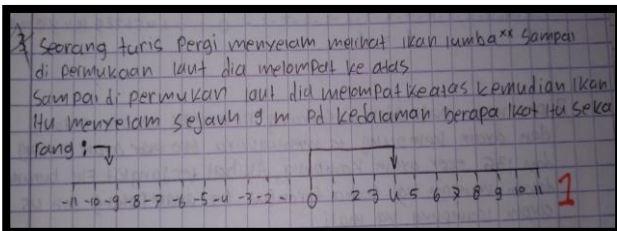 3 Seorang turis pergi menyelam melihat ikan lumba** sampai
di permukaan laut dia melompat ke atas
Sampai di permukan laut dia melompat keatas kemudian ikan
itu menyelam sejauh 9 m pd kedalaman berapa ikat itu seka
rang :
-11 -10 -9 -8 -7 -6 -5 -4 -3 -2 -1 0 1 2 3 4 5 6 7 8 9 10 11 1